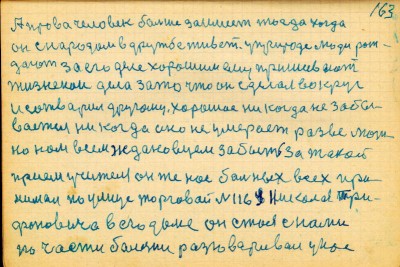 163
А права человек балние занимает тогда когда
он снародом вдружбе живет. унуроде люди рож
дают за его дела хорошим ему
жизненой дела за то что он сделал вокруг
исотварил другому, хорошое никогда не забы
вается никогда оно не умерает разве можн
но нам всем ждановцем забыть за такой
прием учителя он же нас балных всех при
нимал по улице торговай N 116 Николай Три-
фоновича вего доме он стоял снами
по части балезни разговаривал унас